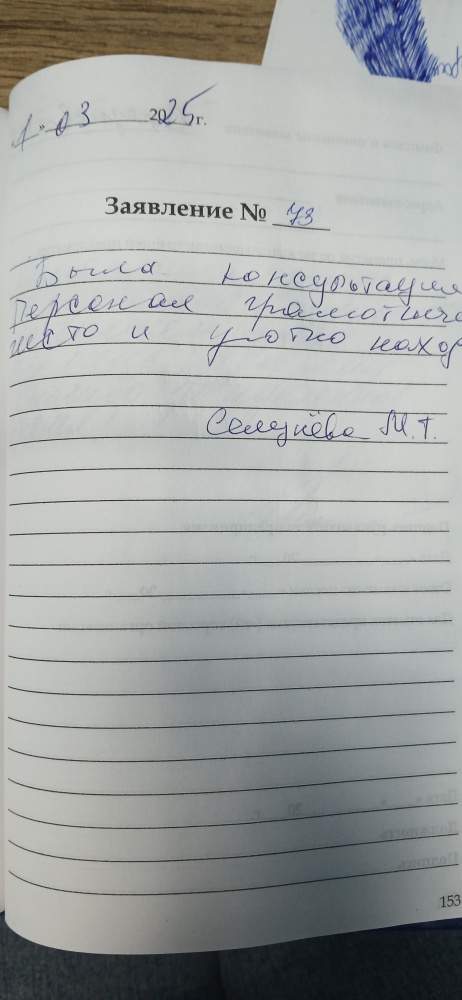 1. 03 2025г.
Заявление № 73
Была консультация
Персонал грамотный
чисто и уютно наход
Селезнёва М.Т.
153